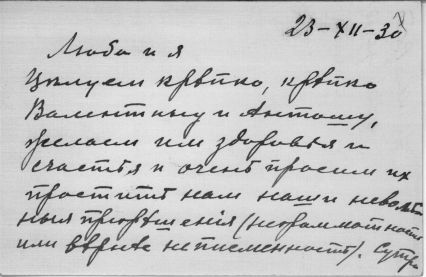 23-XII-30
Люба и я
Цѣлуем крѣпко, крѣпко
Валентину и Антошу,
желаем им здоровья и
счастья и очень просим их
простить нам наши неволь
ныя прегрѣшенія (неграмотность
или вѣрнѣе неписменность).